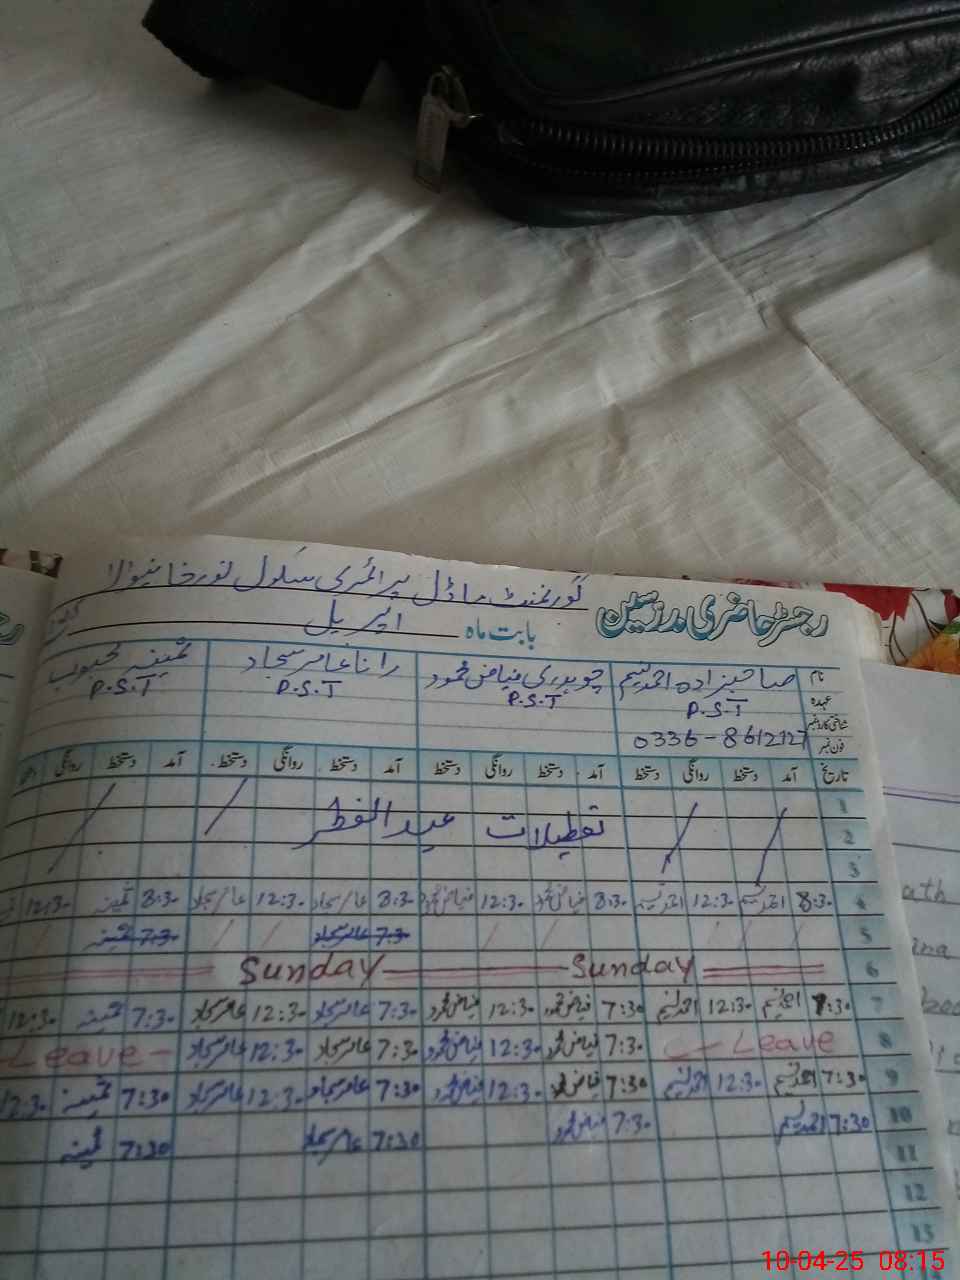 گورنمنٹ ماڈل پرائمری سکول نورخانیوالا
رجسٹر حاضری مدرسین
بابت ماہ اپریل
نام صاحبزادہ احمد نسیم چوہدری فیاض محمود رانا عامر سجاد ثمینہ محبوب
عہدہ P.S.T P.S.T P.S.T P.S.T
شناختی کارڈ نمبر
فون نمبر 0336-8612127
تاریخ آمد دستخط روانگی دستخط آمد دستخط روانگی دستخط آمد دستخط روانگی دستخط آمد دستخط روانگی
1
2 تعطیلات عید الفطر
3
4 8:30 احمد نسیم 12:30 احمد نسیم 8:30 فیاض محمود 12:30 فیاض محمود 8:30 عامر سجاد 12:30 عامر سجاد 8:30 ثمینہ 12:30
5 7:30 عامر سجاد 7:30 ثمینہ
6 Sunday Sunday
7 7:30 احمد نسیم 12:30 احمد نسیم 7:30 فیاض محمود 12:30 فیاض محمود 7:30 عامر سجاد 12:30 عامر سجاد 7:30 ثمینہ 12:30
8 Leave 7:30 فیاض محمود 12:30 فیاض محمود 7:30 عامر سجاد 12:30 عامر سجاد Leave
9 7:30 احمد نسیم 12:30 احمد نسیم 7:30 فیاض محمود 12:30 فیاض محمود 7:30 عامر سجاد 12:30 عامر سجاد 7:30 ثمینہ 12:30
10 7:30 احمد نسیم 7:30 فیاض محمود 7:30 عامر سجاد 7:30 ثمینہ
11
12
13
10-04-25 08:15